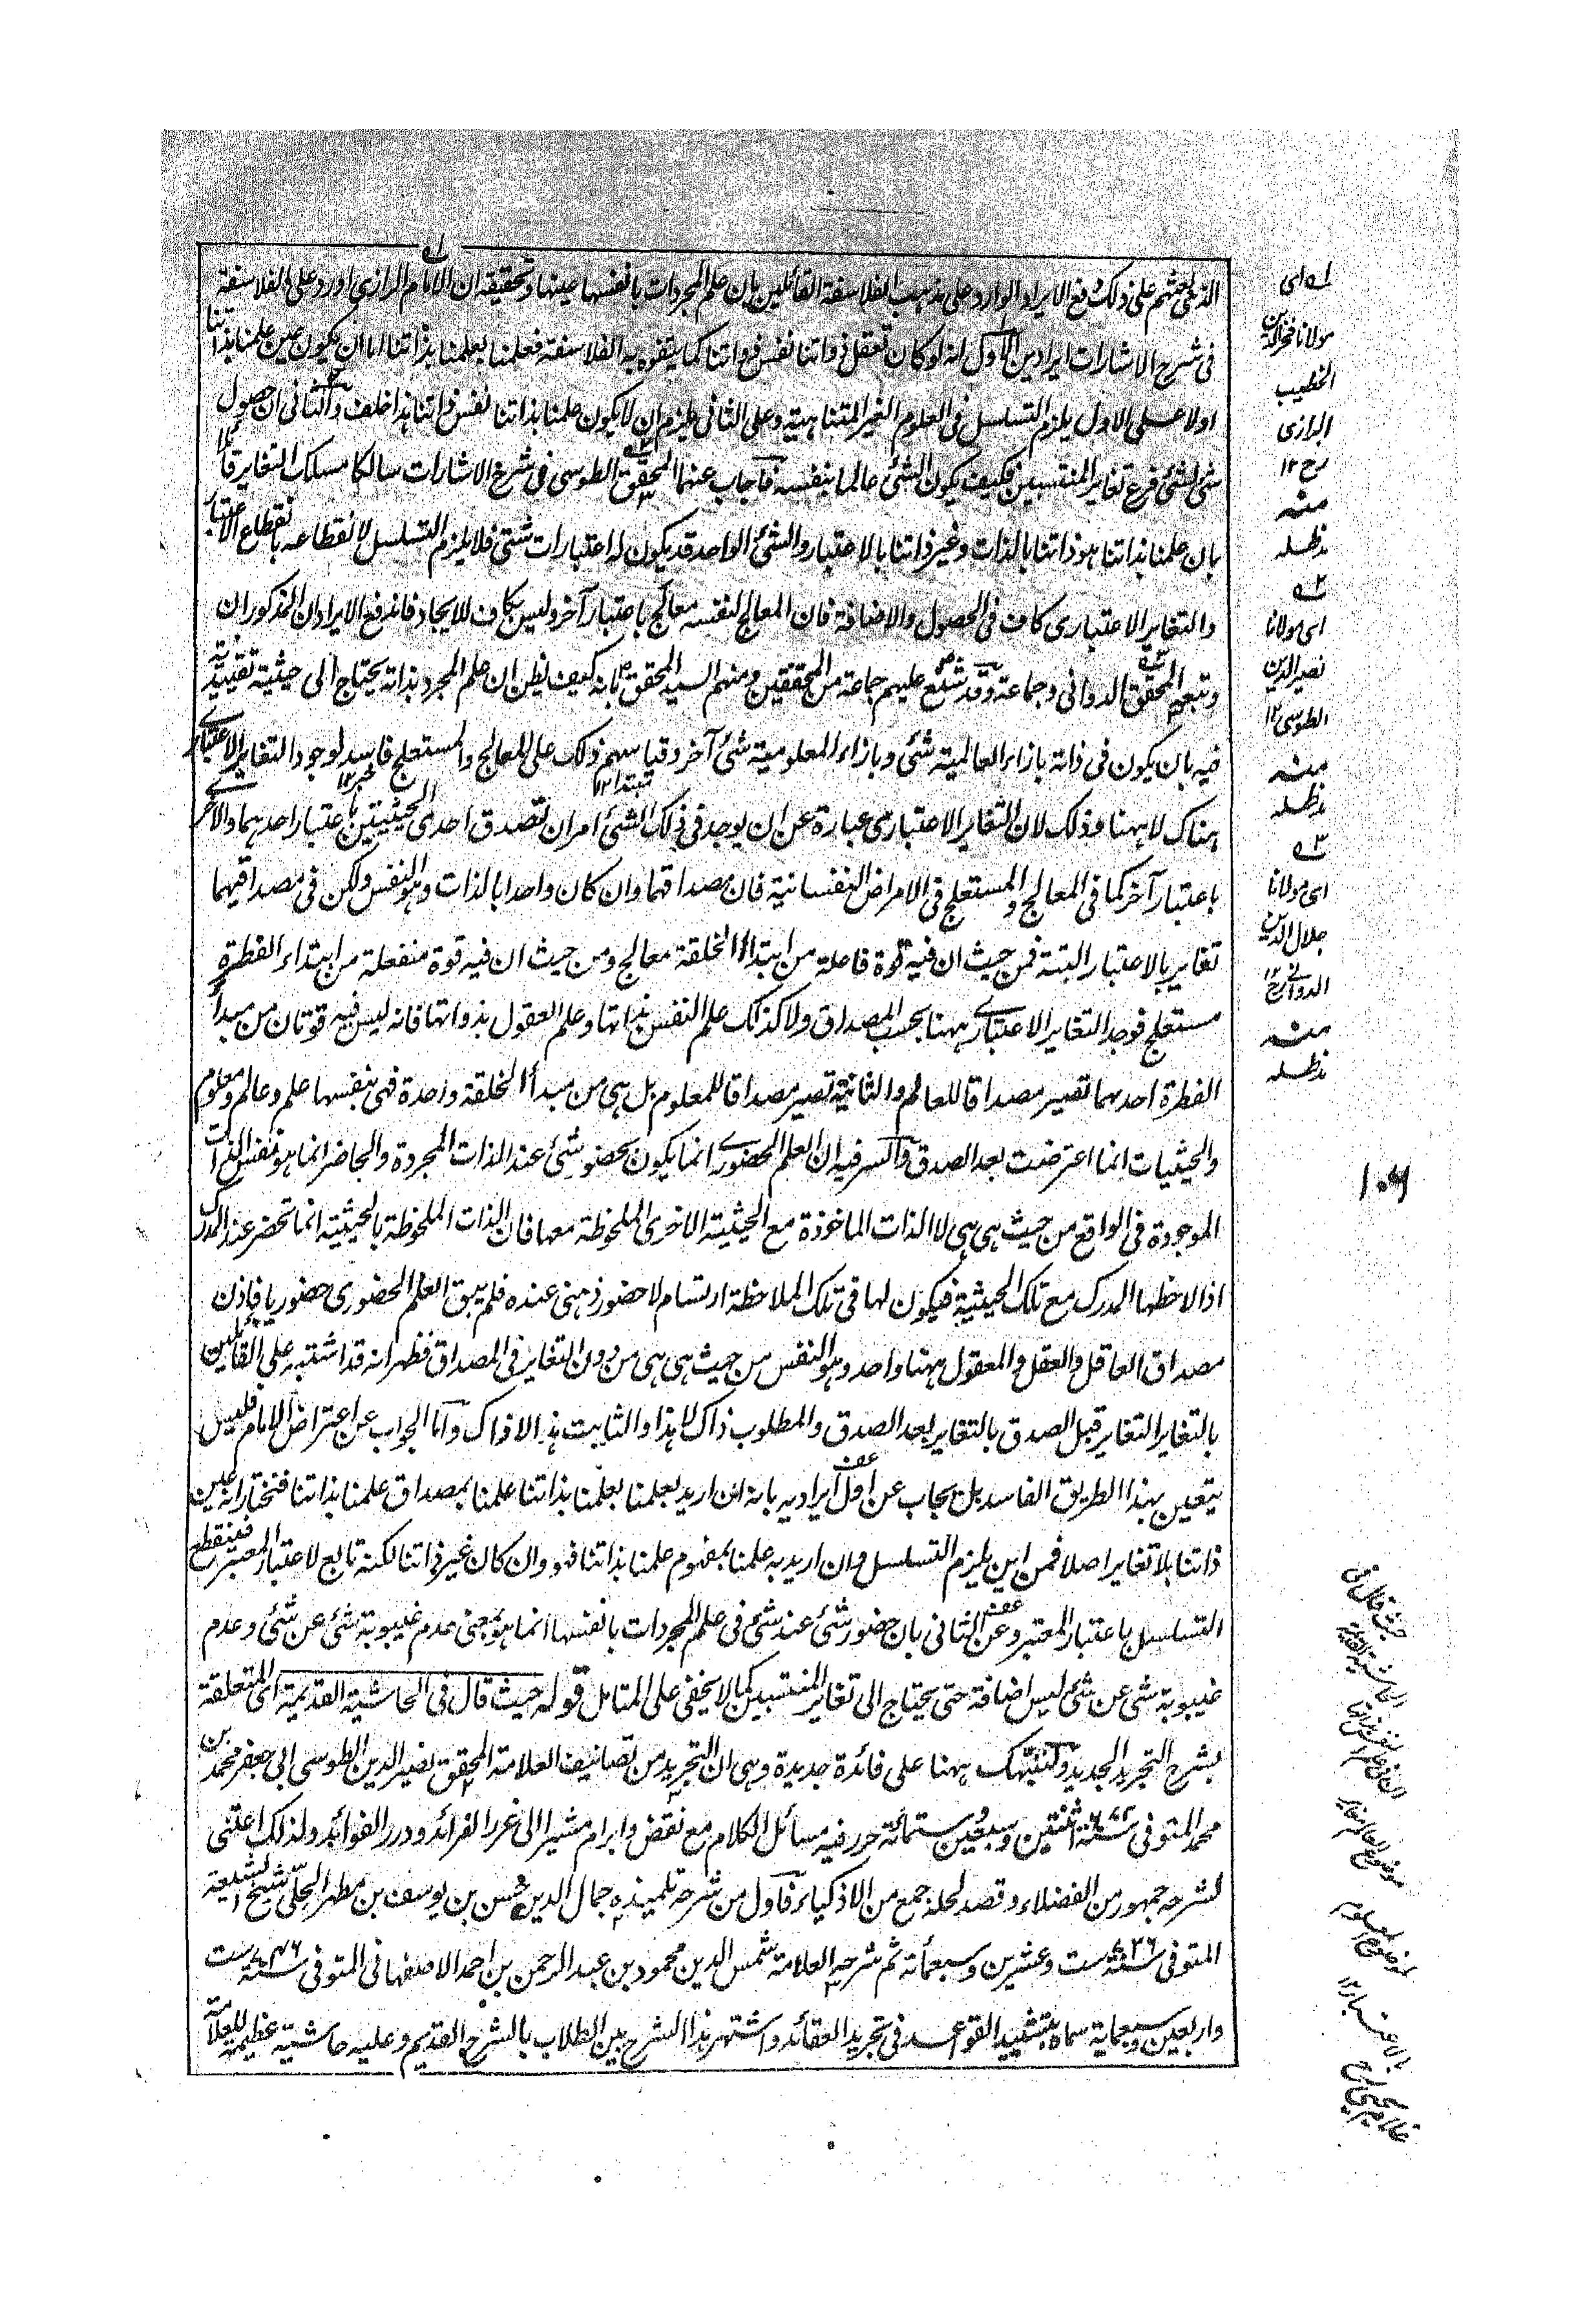 الذي بعثهم على ذلك دفع الايراد الوارد على مذهب الفلاسفة القائلين بان علم المجردات بانفسها عينها وتحقيقه ان الامام الرازي اورد على الفلاسفة
في شرح الاشارات ايرادين الاول انه لو كان تعقل ذواتنا نفس ذواتنا كما يتفوه به الفلاسفة فعلمنا بعلمنا بذاتنا اما ان يكون عين علمنا بذاتنا
اولا على الاول يلزم التسلسل في العلوم الغير المتناهية وعلى الثاني يلزم ان لا يكون علمنا بذاتنا نفس ذواتنا هذا خلف والثاني ان حصول
شئ لشئ فرع تغاير المنتسبين فكيف يكون الشئ عالما بنفسه فاجاب عنهما المحقق الطوسي في شرح الاشارات سالكا مسلك التغاير قائلا
بان علمنا بذاتنا هو ذاتنا بالذات وغير ذاتنا بالاعتبار والشئ الواحد قد يكون له اعتبارات شتى فلا يلزم التسلسل لانقطاعه بانقطاع الاعتبار
والتغاير الاعتباري كاف في الحصول والاضافة فان المعالج لنفسه معالج باعتبار آخر وليس بكاف للايجاد فاندفع الايرادان المذكوران
وتبعه المحقق الدواني وجماعة وقد شنع عليهم جماعة من المحققين ومنهم السيد المحقق بانه كيف يظن ان علم المجرد بذاته يحتاج الى حيثية تقييدية
فيه بان يكون في ذاته بازاء العالمية شئ وبازاء المعلومية شئ آخر وقياسهم ذلك على المعالج والمستعلج فاسد لوجود التغاير الاعتباري
هناك لا ههنا وذلك لان التغاير الاعتباري عبارة عن ان يوجد في ذلك الشئ امران تصدق احدى الحيثيتين باعتبار احدهما والاخرى
باعتبار آخر كما في المعالج والمستعلج في الامراض النفسانية فان مصداقهما وان كان واحدا بالذات وهو النفس ولكن في مصداقيهما
تغاير بالاعتبار البتة فمن حيث ان فيه قوة فاعلة من ابتداء الخلقة معالج ومن حيث ان فيه قوة منفعلة من ابتداء الفطرة
مستعلج فوجد التغاير الاعتباري ههنا بحسب المصداق ولا كذلك علم النفس بذاتها وعلم العقول بذواتها فانه ليس فيه قوتان من مبدأ
الفطرة احدهما تصير مصداقا للعالم والثانية تصير مصداقا للمعلوم بل هي من مبدأ الخلقة واحدة فهي بنفسها علم وعالم ومعلوم
والحيثيات انما اعترضت بعد الصدق والسر فيه ان العلم الحضوري انما يكون بحضور شئ عند الذات المجردة والحاضر انما هو نفس الذات
الموجودة في الواقع من حيث هي هي لا الذات الماخوذة مع الحيثية الاخرى الملحوظة معها فان الذات الملحوظة بالحيثية انما تحضر عند المدرك
اذا لاحظها المدرك مع تلك الحيثية فيكون لها في تلك الملاحظة ارتسام لا حضور ذهني عنده فلم يبق العلم الحضوري حضوريا فاذن
مصداق العاقل والعقل والمعقول ههنا واحد وهو النفس من حيث هي هي من دون التغاير في المصداق فظهر انه قد اشتبه على القائلين
بالتغاير التغاير قبل الصدق بالتغاير بعد الصدق والمطلوب ذاك لا هذا والثابت هذا لا ذاك واما الجواب عن اعتراض الامام فليس
يتعين بهذا الطريق الفاسد بل يجاب عن اول ايراديه بانه ان اريد بعلمنا بعلمنا بذاتنا علمنا بمصداق علمنا بذاتنا فنختار انه عين
ذاتنا بلا تغاير اصلا فمن اين يلزم التسلسل وان اريد به علمنا بمفهوم علمنا بذاتنا فهو وان كان غير ذاتنا لكنه تابع لاعتبار المعتبر فينقطع
التسلسل باعتبار المعتبر وعن الثاني بان حضور شئ عند شئ في علم المجردات بانفسها انما هو بمعنى عدم غيبوبة شئ عن شئ وعدم
غيبوبة شئ عن شئ ليس اضافة حتى يحتاج الى تغاير المنتسبين كما لا يخفى على المتامل قوله حيث قال في الحاشية القديمة اى المتعلقة
بشرح التجريد الجديد ولننبهك ههنا على فائدة جديدة وهي ان التجريد من تصانيف العلامة المحقق نصير الدين الطوسي ابي جعفر محمد بن
محمد المتوفى سنة ٦٧٢ اثنتين وسبعين وستمائة حرر فيه مسائل الكلام مع نقض وابرام مشيرا الى غرر الفرائد ودرر الفوائد ولذلك اعتنى
لشرحه جمهور من الفضلاء وقصد لحله جمع من الاذكياء فاول من شرحه تلميذه جمال الدين حسن بن يوسف بن مطهر الحلي شيخ الشيعة
المتوفى سنة ٧٢٦ ست وعشرين وسبعمائة ثم شرحه العلامة شمس الدين محمود بن عبد الرحمن بن احمد الاصفهاني المتوفى سنة ٧٤٦ ست
واربعين وسبعماية سماه بتشييد القواعد في تجريد العقائد واشتهر هذا الشرح بين الطلاب بالشرح القديم وعليه حاشية عظيمة للعلامة
له اى
مولانا فخر الدين
الخطيب
الرازى
رح ١٢
منه
مدظله
٢
اى مولانا
نصير الدين
الطوسى ١٢
منه
مدظله
٣
اى مولانا
جلال الدين
الدوانى رح ١٢
منه
مدظله